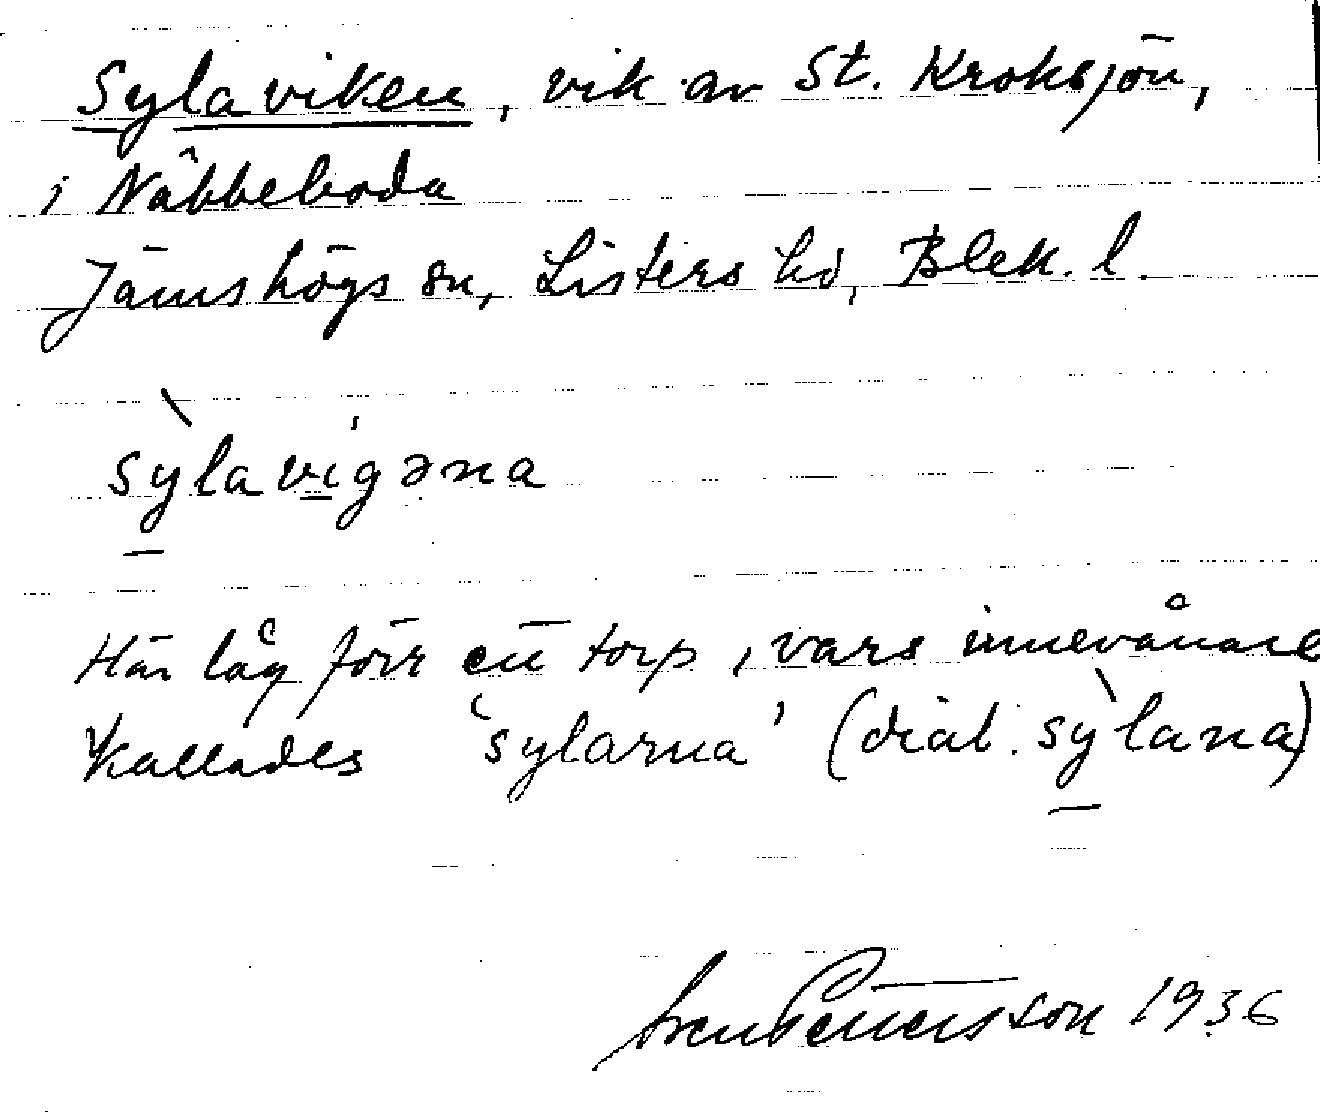 Sylaviken, vik av St. Kroksjön,
i Näbbeboda
Jämshögs sn, Listers hd, Blek. l.
sỳlavi̱gəna
Här låg förr ett torp, vars innevånare
kallades 'sylarna' (dial. sỳlana)
Sven Pettersson 1936